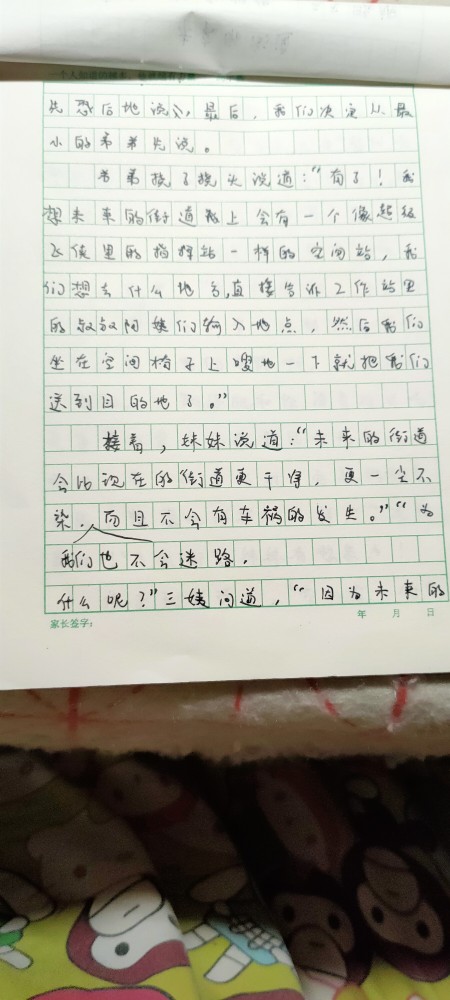 先恐后地说), 最后，我们决定从最
小的弟弟先说。
弟弟挠了挠头说道：“有了！我
想未来的街道路上会有一个像超级
飞侠里的指挥站一样的空间站，我
们想去什么地方,直接告诉工作站里
的叔叔阿姨们输入地点，然后我们
坐在空间椅子上嗖地一下就把我们
送到目的地了。”
接着，妹妹说道：“未来的街道
会比现在的街道更干净，更一尘不
染，而且不会有车祸的发生。”“为
我们也不会迷路，
什么呢？”三姨问道，“因为未来的
家长签字：
年 月 日